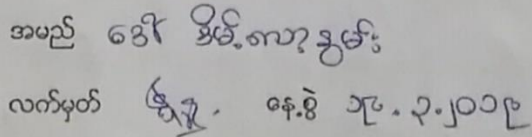 အမည် ဒေါ် ဒိမ့်လော့ခွမ်း
လက်မှတ် နေ့စွဲ ၁၄.၃.၂၀၁၉